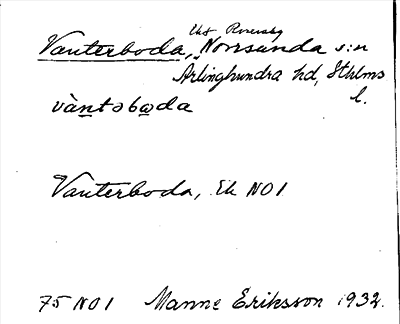 Vanterboda, Norrsunda s:n
Ärlinghundra hd, Sthlms
l.
vàntəboda
Vanterboda, Ek NO1
75 NO1 Manne Eriksson 1932.